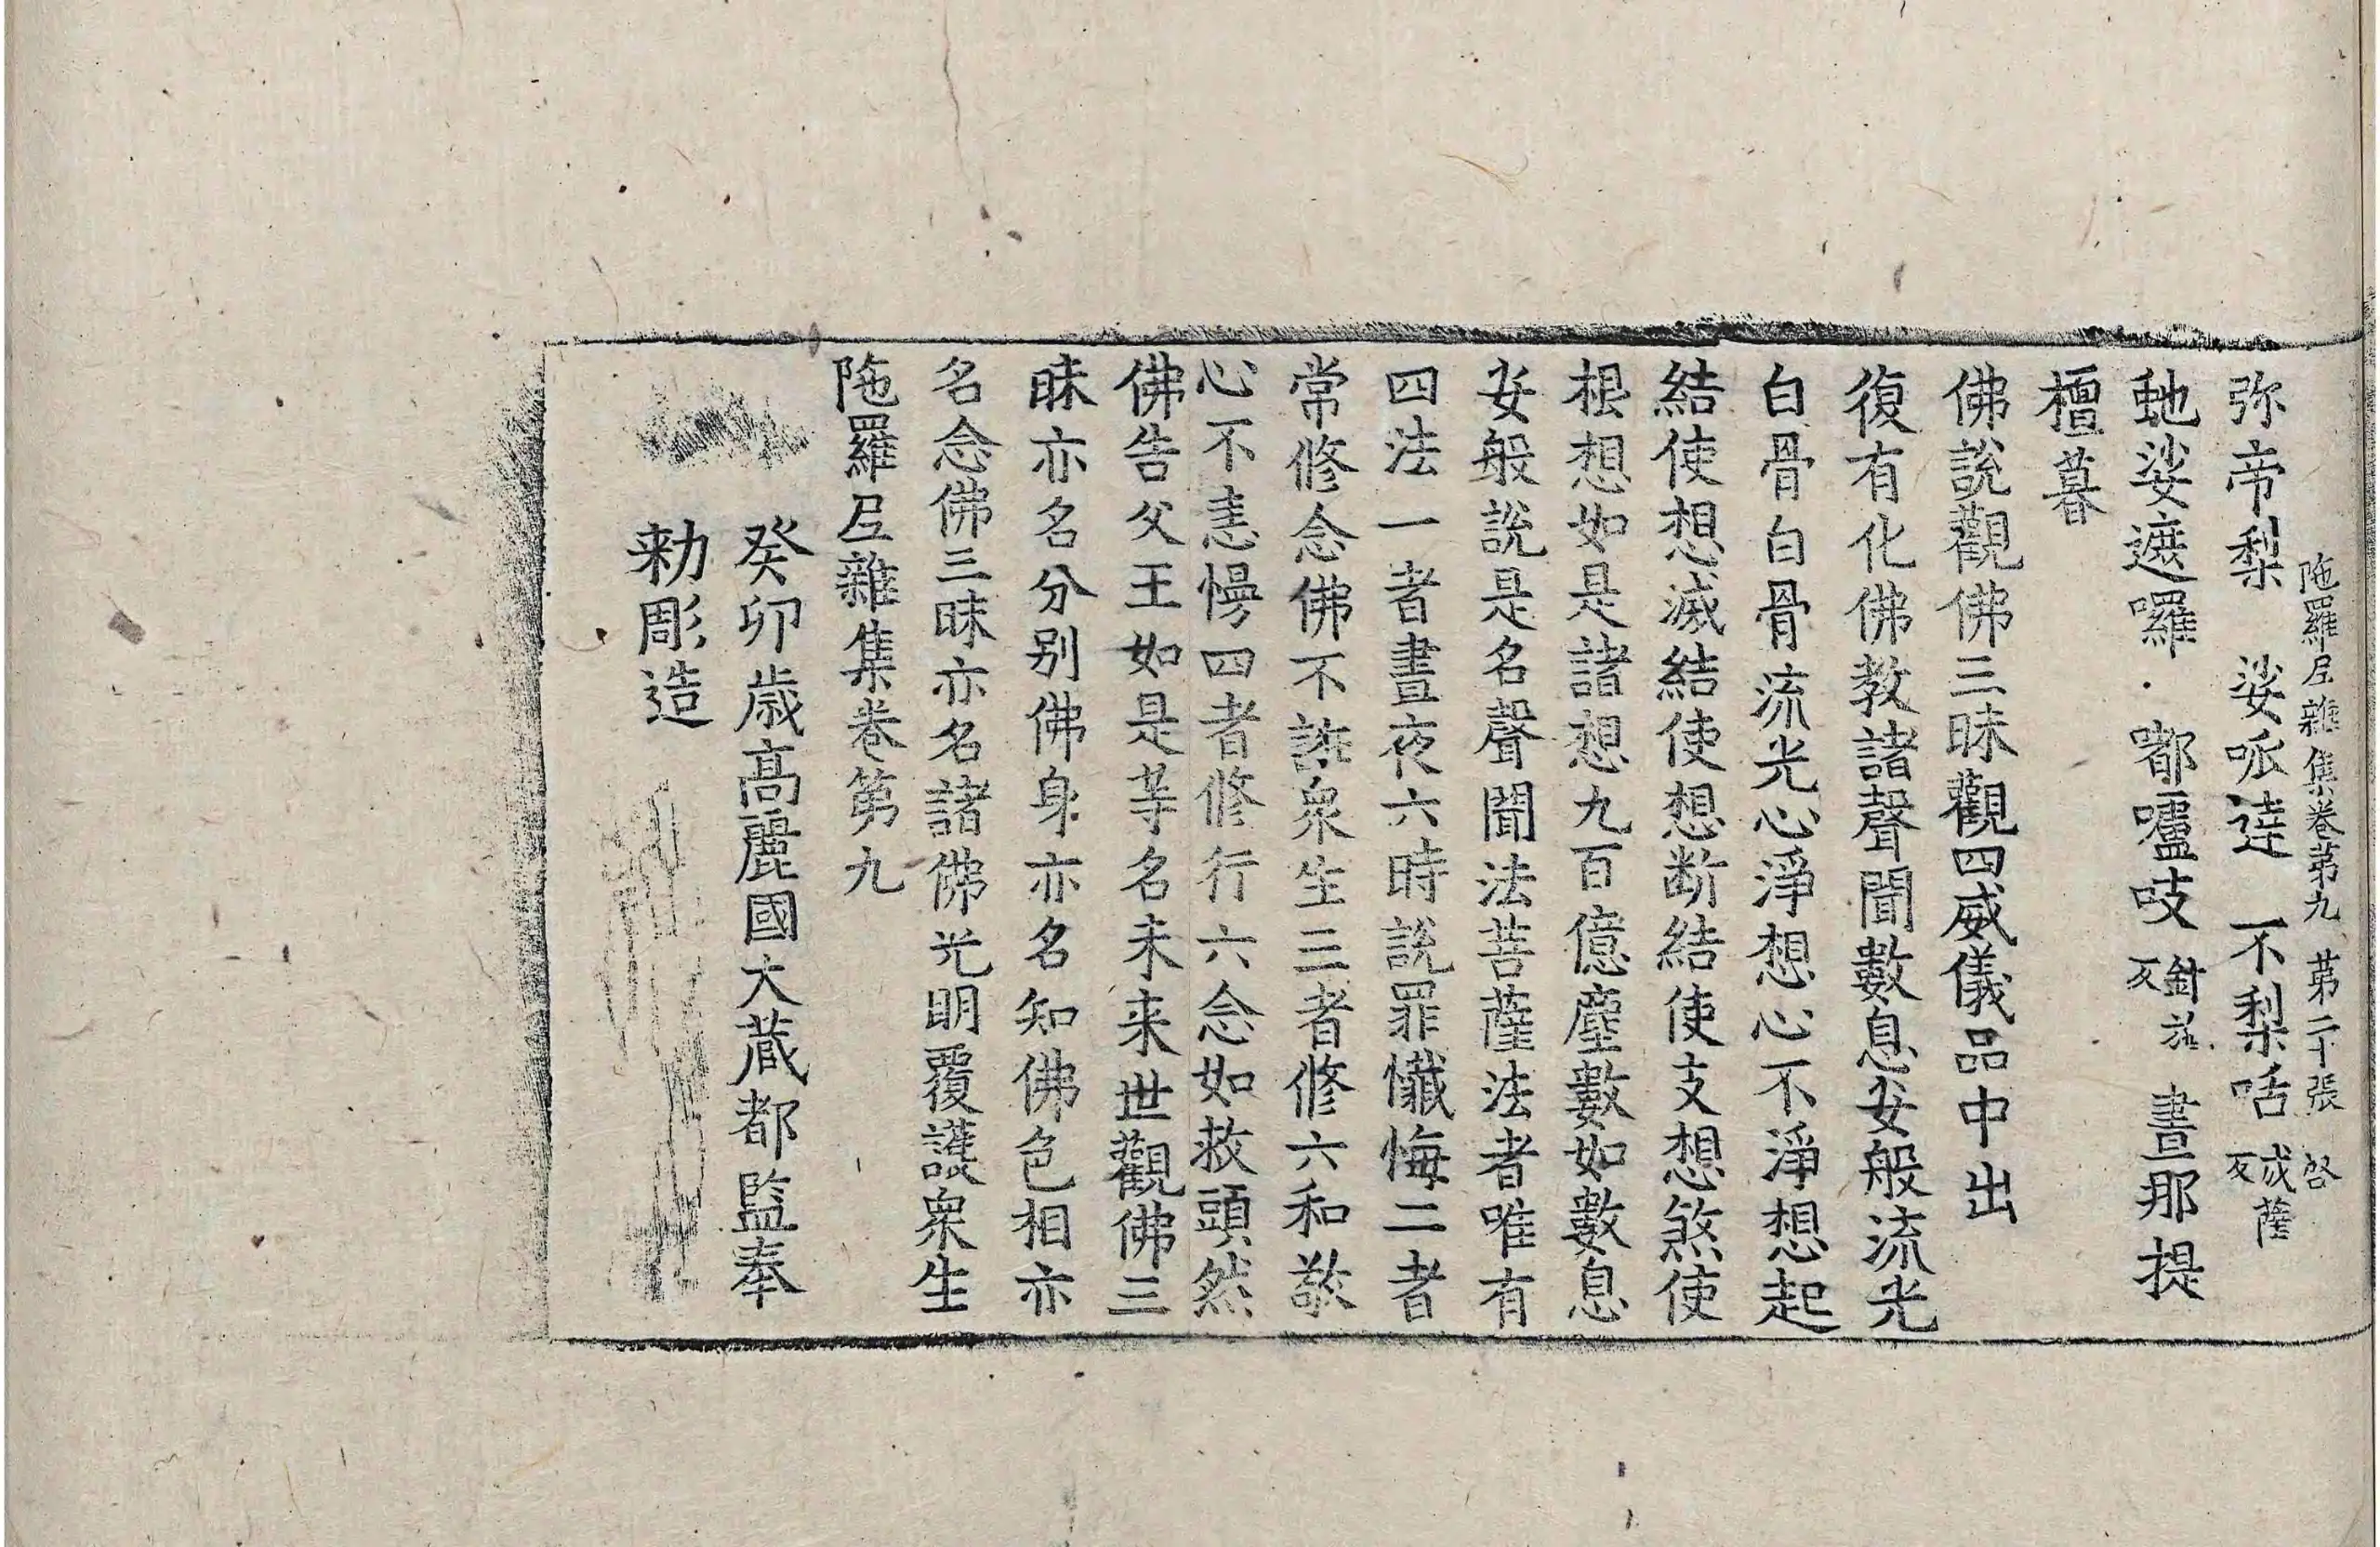 陁羅尼雜集卷第九 第二十張 啓
弥帝梨 娑呱達 不梨咶 薩成反
虵娑遮囉 嘟嚧吱 針茲反 晝那提
檀暮
佛說觀佛三昧觀四威儀品中出
復有化佛教諸聲聞數息安般流光
白骨白骨流光心淨想心不淨想起
結使想滅結使想斷結使支想煞使
根想如是諸想九百億塵數如數息
安般說是名聲聞法菩薩法者唯有
四法一者晝夜六時說罪懺悔二者
常修念佛不誑衆生三者修六和敬
心不恚慢四者修行六念如救頭然
佛告父王如是等名未来世觀佛三
昧亦名分别佛身亦名知佛色相亦
名念佛三昧亦名諸佛光明覆護衆生
陁羅尼雜集卷第九
癸卯歲高麗國大藏都監奉
勑彫造